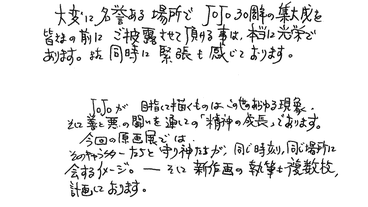 大変に名誉ある場所で JOJO 30周年の集大成を
皆様の前に ご披露させて頂ける事は、本当に光栄で
あります。 同時に緊張も感じております。
JOJOが 目指して描くものは、この世のあらゆる現象、
そして善と悪の闘いを通しての「精神の成長」であります。
今回の原画展では、
そのキャラクターたちと守り神たちが、同じ時刻、同じ場所に
会するイメージ。 ― そして 新作画の執筆も複数枚、
計画しております。